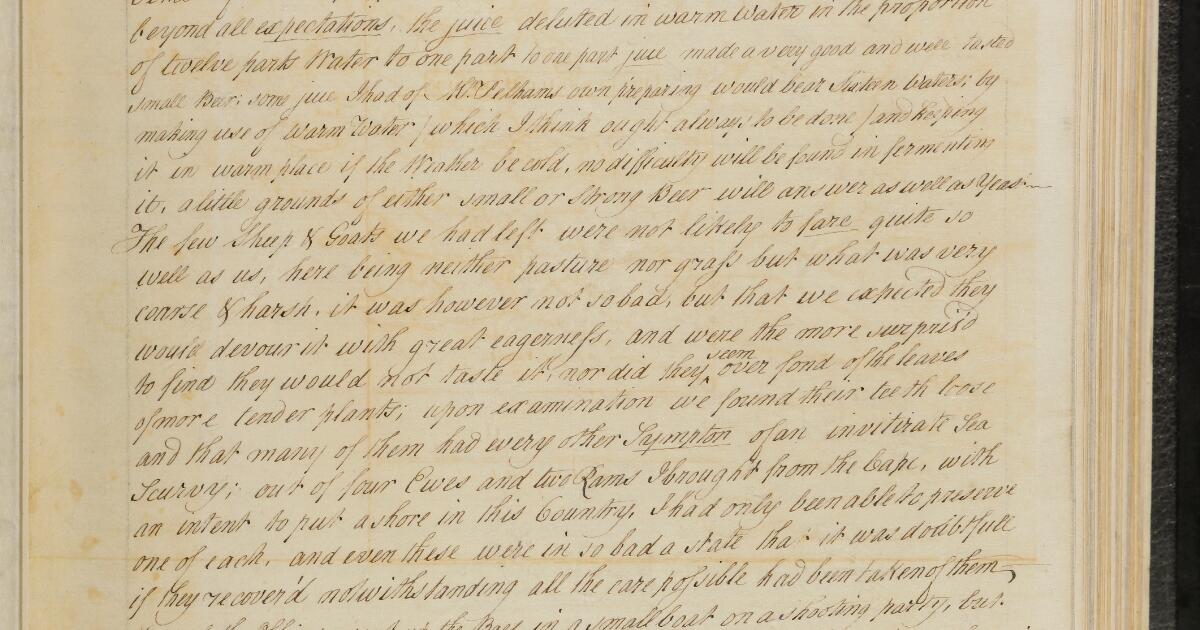 beyond all expectations, the juice deluted in warm Water in the proportion
of twelve parts Water to one part to one part juce made a very good and well tasted
small Beer; some juce I had of Mr. Pelhams own preparing would bear Sixteen Waters; by
making use of warm Water (which I think ought always to be done) and keeping
it in warm place if the Weather be cold, no difficulty will be found in fermenting
it, a little grounds of either small or strong Beer will answer as well as Yeast
The few Sheep & Goats we had left were not likely to fare quite so
well as us, here being neither pasture nor grass but what was very
coarse & harsh, it was however not so bad, but that we expected they
would devour it with great eagerness, and were the more surpris'd
to find they would not taste it, nor did they seem over fond of the leaves
of more tender plants; upon examination we found their teeth loose
and that many of them had every other Sympton of an invitirate Sea
Scurvy; out of four Ewes and two Rams I brought from the Cape, with
an intent to put a shore in this Country, I had only been able to preserve
one of each, and even these were in so bad a state that it was doubtfull
if they recover'd notwithstanding all the care possible had been taken of them
in a small boat on a shooting party, but